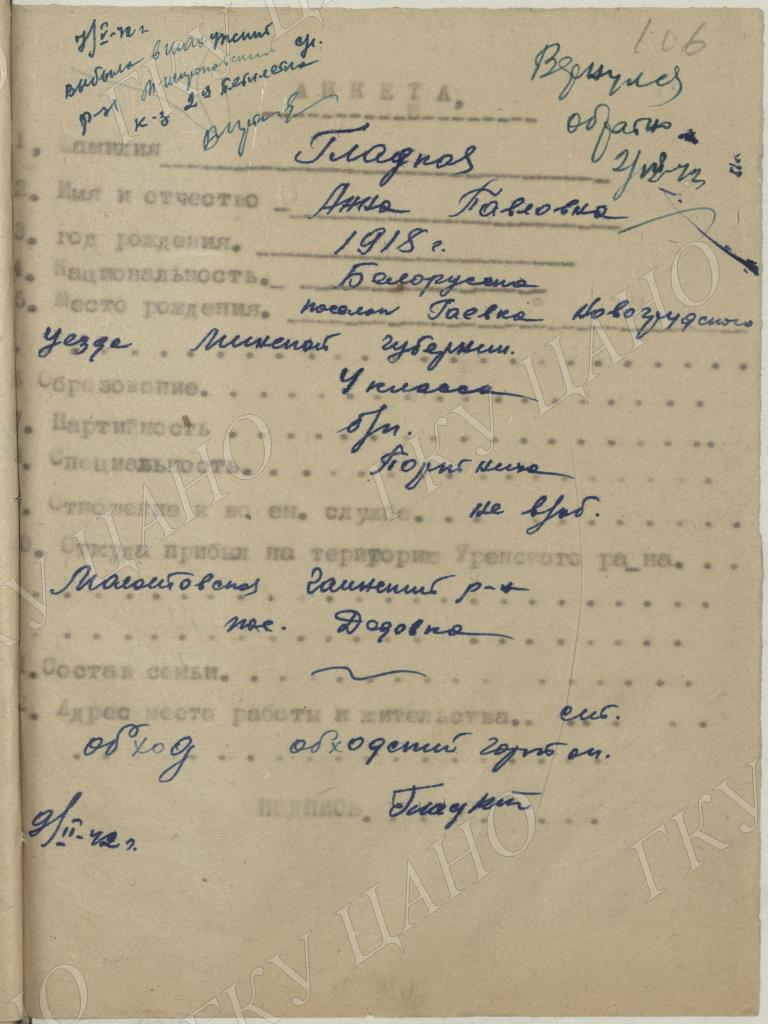 106
выбыла в
р-н
к-з 2я пятилетка
Вернулся
обратно
АНКЕТА.
1. Фамилия Гладкая
2. Имя и отчество Анна Павловна
3. год рождения. 1918 г.
4. Национальность. Белорусска
5. Место рождения. поселок Гаевка Новогрудского
уезда Минской губернии.
6 Образование. 4 класса
7. Партийность б/п.
. Специальность. Портниха
. Отношение к во ен. службе. не в/об.
0. Откуда прибыл на територию Уренского ра_на.
р-н
пос. Дедовка
1. Состав семьи.
. Адрес места работы и жительства. ст.
обход обходский
подпись. Гладкий
9/II-42 г.
ГКУ ЦАНО